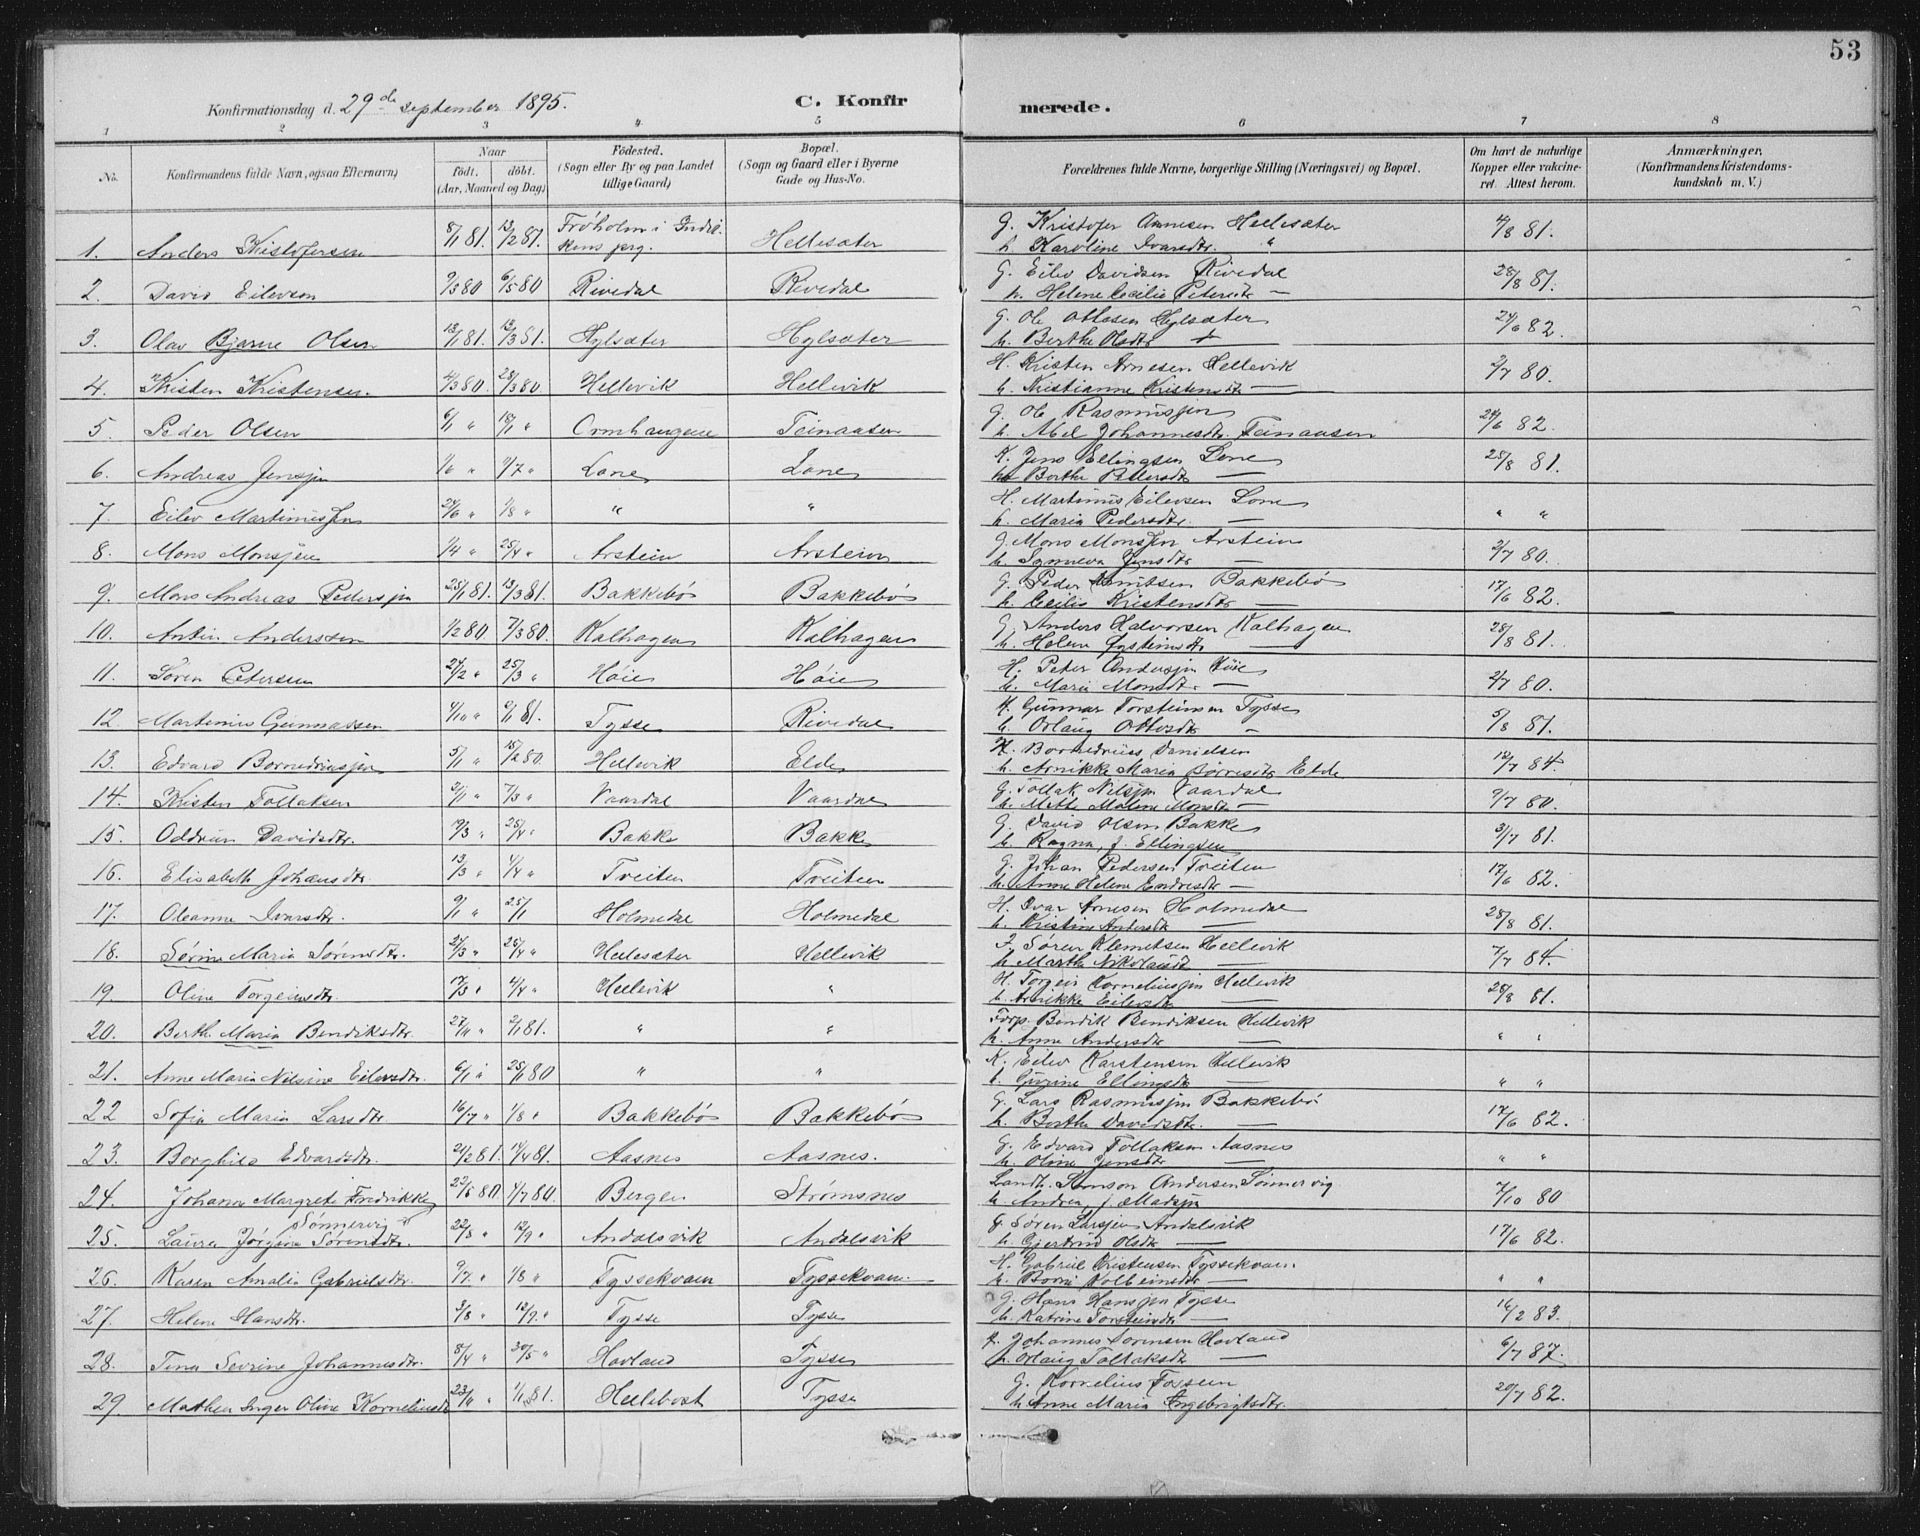 53
Konfirmationsdag d. 29de september 1895.
C. Konfirmerede.
1 2 3 4 5 6 7 8
No. Konfirmandens fulde Navn, ogsaa Efternavn) Naar födt. döbt. (Aar, Maaned og Dag) Födested. (Sogn eller By og paa Landet tillige Gaard) Bopæl. (Sogn og Gaard eller i Byerne Gade og Hus-No. Forældrenes fulde Navne, borgerlige Stilling (Næringsvei) og Bopæl. Om havt de naturlige Kopper eller vakcineret. Attest herom. Anmærkninger, (Konfirmandens Kristendomskundskab m. V.)
1. Anders Kristofersen 8/1 81. 13/2 81. Fröholm i Hellesæter G. Kristofer Hellesæter 4/8 81.
h. Karoline Ivarsdtr. "
2. David Eilevsen 9/3 80 6/5 80 Rivedal Rivedal G. Eilev Davidsen Rivedal 28/8 81.
h. Helene Cecilie Petersdtr —
3. Olav Bjarne Olsen 13/1 81. 13/3 81. Hylsæter Hylsæter G. Ole Ottosen Hylsæter 24/6 82
h. Berthe Olsdtr
4. Kristen Kristensen 4/3 80. 28/3 80 Hellevik Hellevik H. Kristen Arnesen Hellevik 2/7 80.
h. Kristianne Kristensdtr —
5. Peder Olsen 6/1 " 18/1 " Ormhaugene Teinaasen G. Ole Rasmussen 24/6 82.
h. Abel Johannesdtr. Teinaasen
6. Andreas Jenssen 1/6 " 4/7 " Lone Lone K. Jens Ellingsen Lone 25/8 81.
h. Berthe Pedersdtr —
7. Eilev Martinussen 24/6 " 1/8 " " " H. Martinus Eilevsen Lone " "
h. Maria Pedersdtr. —
8. Mons Monssen 1/4 " 25/4 " Arstein Arstein G. Mons Monssen Arstein 2/7 80.
h. Synneva Jensdtr —
9. Mons Andreas Pederssen 25/1 81. 13/3 81. Bakkebö Bakkebö G. Peder Knutsen Bakkebö 17/6 82.
h. Cecilie Kristensdtr —
10. Antin Anderssen 1/2 80 7/3 80. Kalhagen Kalhagen G. Anders Halvorsen Kalhagen 28/8 81.
h. Helene Eysteinsdtr —
11. Sören Petersen 24/2 " 25/3 " Höie Höie H. Peter Anderssen Höie 2/7 80.
h. Maria Monsdtr —
12. Martinus Gunnarsen 4/10 " 9/1 81. Tysse Rivedal H. Gunnar Torsteinsen Tysse 5/8 81.
h. Orlaug Ottosdtr —
13. Edvard Bornedrussen 5/1 " 15/2 80. Hellevik Elde H. Bornedrus Danielsen 12/7 84.
h. Arnikke Maria Börresdtr Elde
14. Kristen Tollaksen 3/1 " 7/3 " Vaardal Vaardal G. Tollak Nilssen Vaardal 9/7 80.
h. Mette Malene Monsdtr —
15. Oddrun Davidsdtr. 19/3 " 25/4 " Bakke Bakke G. David Olsen Bakke 3/7 81.
h. Ragna, f. Ellingsen
16. Elisabeth Johansdtr 13/3 " 4/4 " Tveiten Tveiten G. Johan Pedersen Tveiten 17/6 82.
h. Anne Helene Endresdtr —
17. Oleanne Ivarsdtr. 9/1 " 25/1 Holmedal Holmedal H. Ivar Arnesen Holmedal 28/8 81.
h. Kristine Andersdtr —
18. Sörine Maria Sörensdtr. 27/3 " 25/4 " Hellesæter Hellevik F. Sören Klemetsen Hellevik 7/7 84.
h. Marthe Nikolaisdtr —
19. Oline Torgeirsdtr. 17/3 " 4/4 " Hellevik " H. Torgeir Korneliussen Hellevik 28/8 81.
h. Arnikke Eilevsdtr —
20. Berthe Maria Bendiksdtr. 27/11 " 2/1 81. " " Forp. Bendik Bendiksen Hellevik " "
h. Anne Andersdtr —
21. Anne Maria Nilsine Eilevsdtr. 6/1 " 25/1 80 " " K. Eilev Karstensen Hellevik " "
h. Gurine Ellingsdtr —
22 Sofia Maria Larsdtr. 16/7 " 1/8 " Bakkebö Bakkebö G. Lars Rasmussen Bakkebö 17/6 82.
h. Berthe Davidsdtr. —
23. Borghild Edvardsdtr. 21/2 81. 14/4 81. Aasnes Aasnes. G. Edvard Tollaksen Aasnes " "
h. Oline Jensdtr —
24. Johanne Margrete Fredrikke Sönnervig 23/5 80. 4/7 80. Bergen Strömsnes Landh. Simson Andersen Sönnervig 7/10 80
h. Andrea f. Madssen
25. Laura Jörgine Sörensdtr. 22/8 " 12/9 " Andalsvik Andalsvik G. Sören Larssen Andalsvik 17/6 82.
h. Gjertrud Olsdtr —
26. Karen Amalia Gabrielsdtr. 9/7 " 1/8 " Tyssekvam Tyssekvam H. Gabriel Kristensen Tyssekvam. " "
h. Kolbeinsdtr —
27. Helene Hansdtr. 3/8 " 12/9 " Tysse Tysse G. Hans Hanssen Tysse 16/2 83.
h. Katrine Torsteinsdtr —
28. Tina Sevrine Johannesdtr. 8/4 " 30/5 " Havland Tysse Johannes Sörensen Havland 6/7 87.
h. Orlaug Tollaksdtr —
29. Mathea Inger Olive Korneliusdtr 23/11 " 1/1 81. Hellebost Tysse G. Kornelius Tossen 20/7 82.
h. Anne Maria Ingebrigtsdtr.